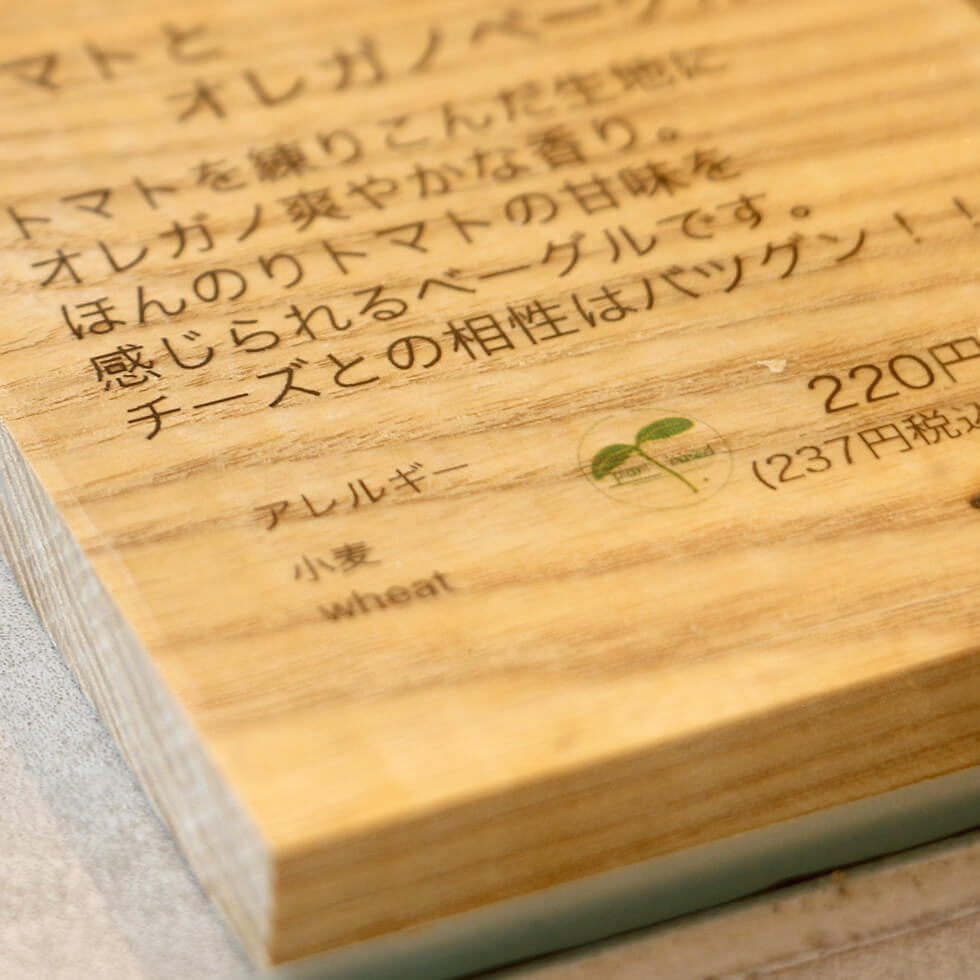 マトと
オレガノベーグル
トマトを練りこんだ生地に
オレガノ爽やかな香り。
ほんのりトマトの甘味を
感じられるベーグルです。
チーズとの相性はバツグン！！
220円
(237円税込
アレルギー
Plant based
小麦
wheat